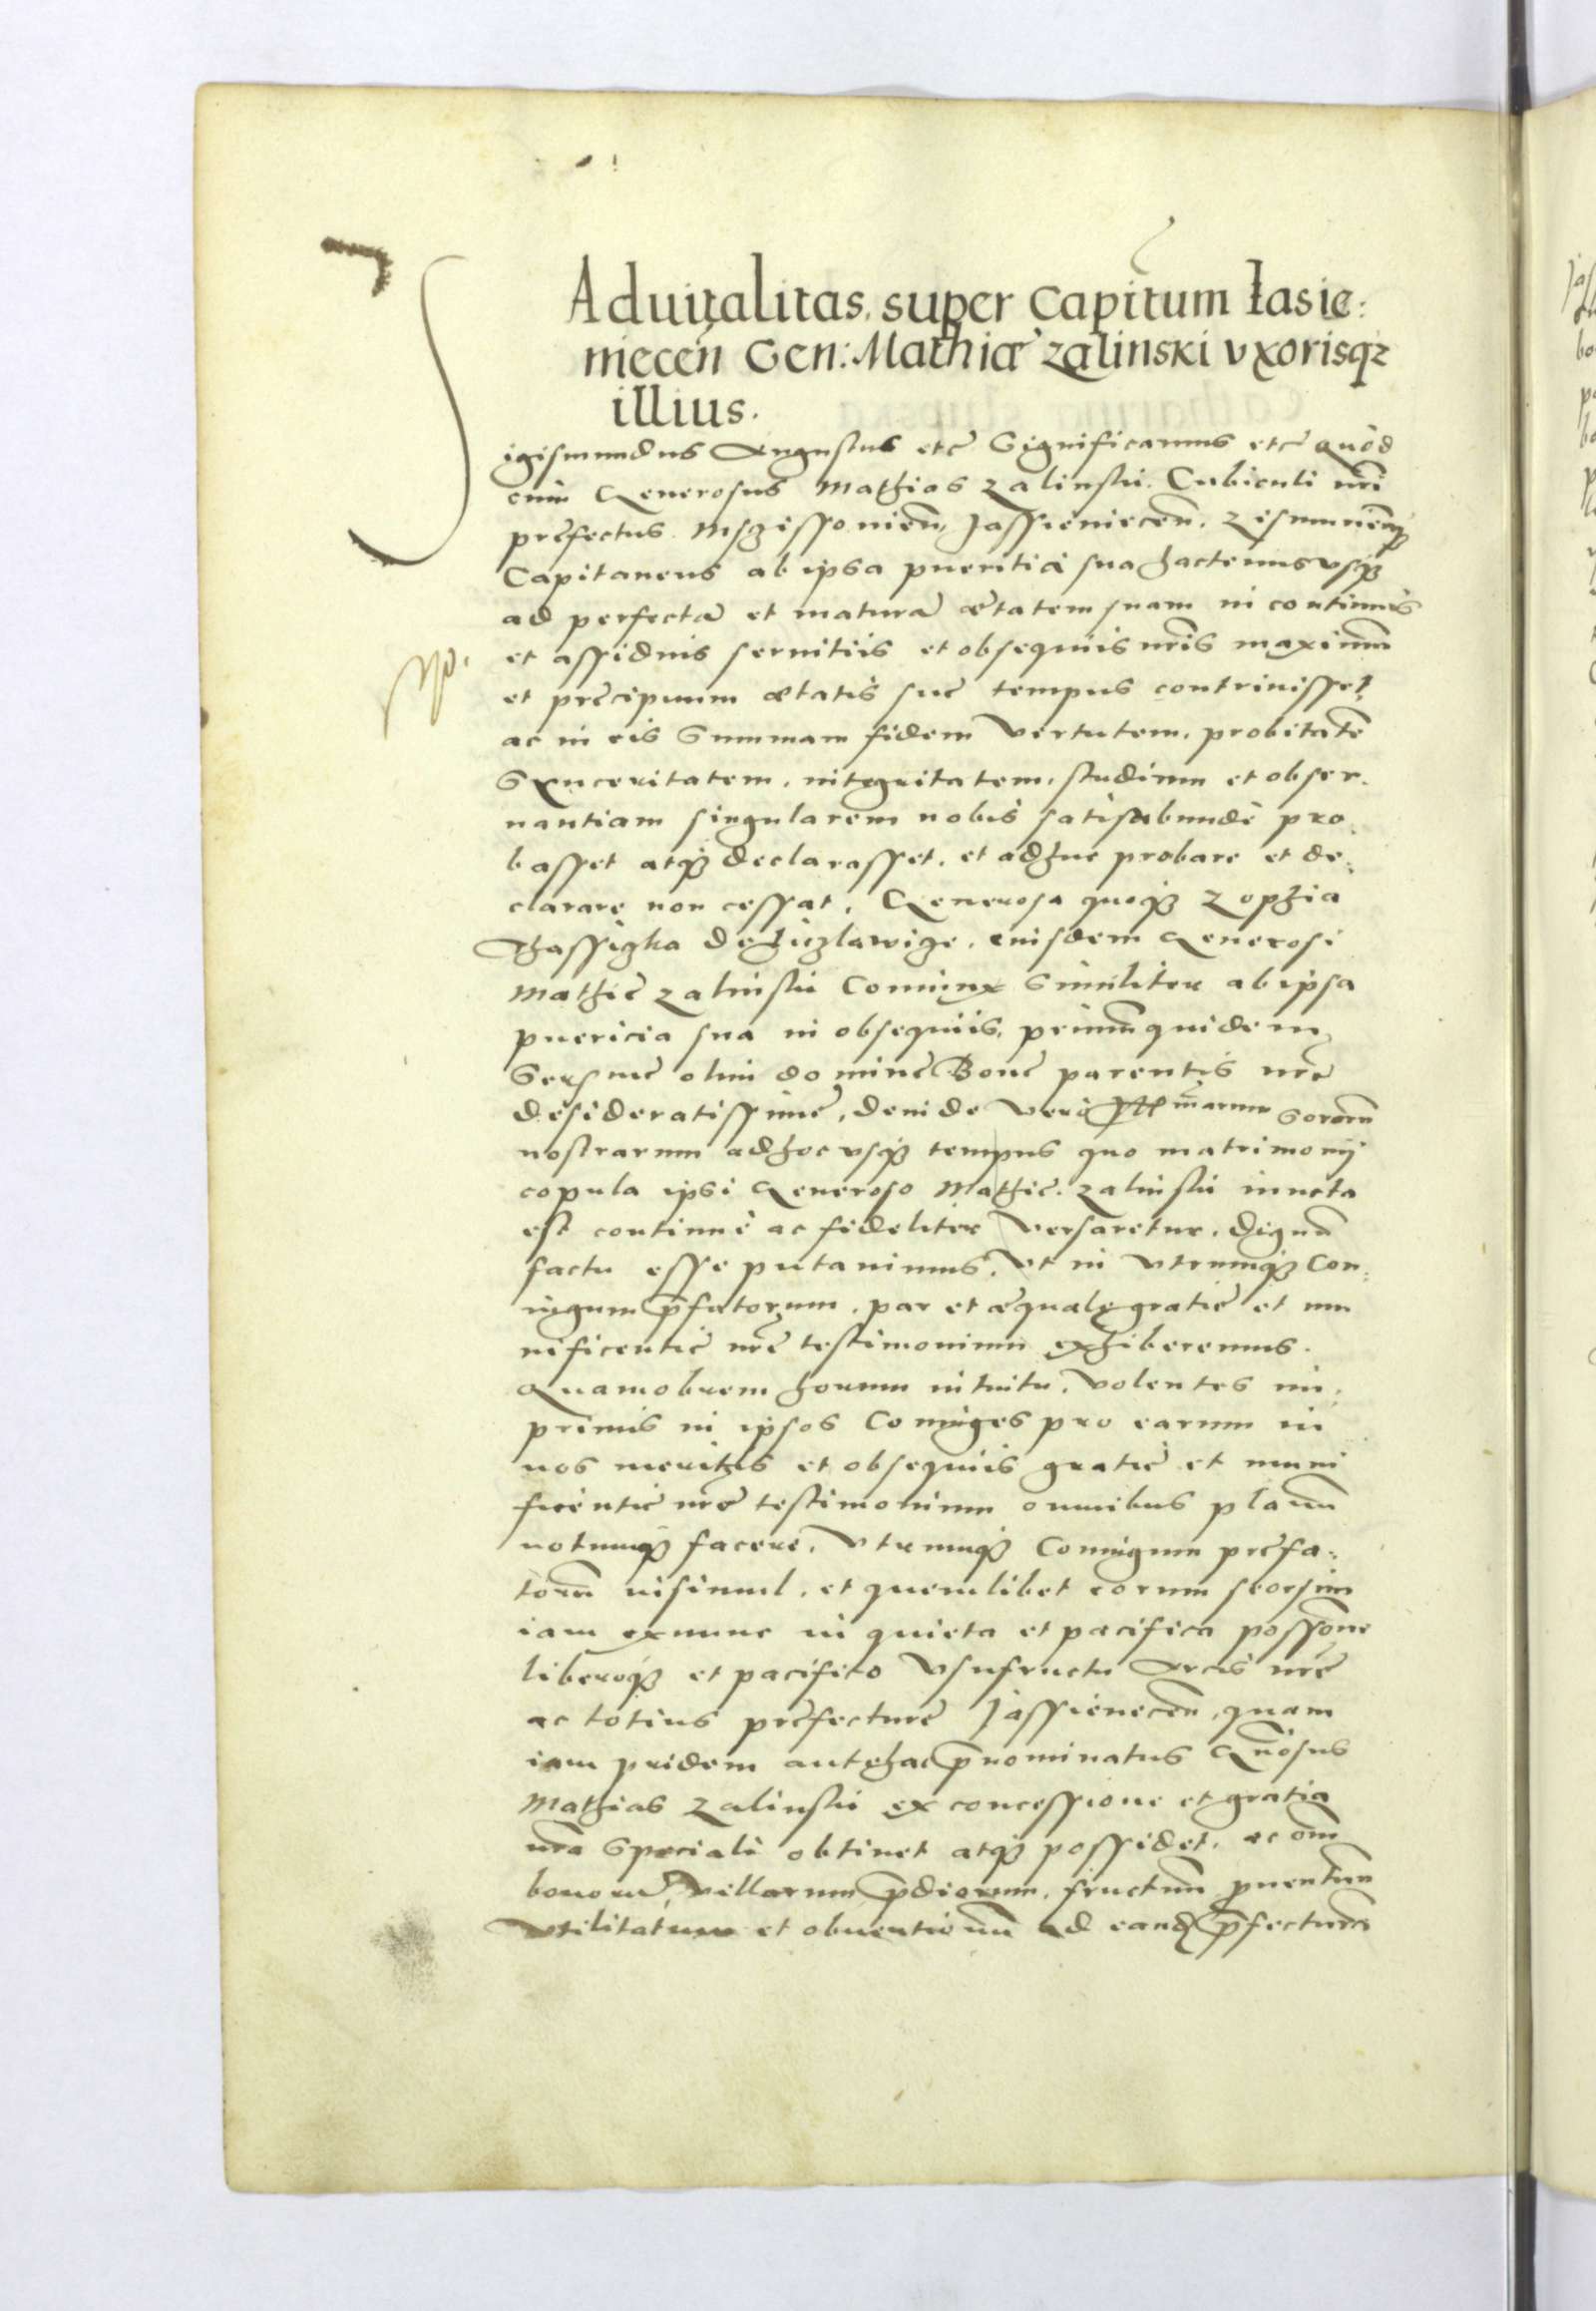 Aduitalitas super Capitum Iasie:
niecen̄ Gen: Mathiæ zalinski vxorisqz
illius.
Sigismundus Augustus etc̄ Significamus etc̄ Quod
cum Generosus Mathias zalinski. Cubiculi nr̄i
prefectus Mszczissonien̄, Jassieniecen̄.
Capitaneus ab ipsa pueritia sua hactenus vsqz
ad perfectā et maturā ætatem suam in continuis
et assiduis seruitiis et obsequiis nr̄is maximum
et precipuum ætatis sue tempus contriuisset
ac in eis Summam fidem Vertutem, probitatē
Synceritatem, integritatem, studium et obser-
uantiam singularem nobis satisabundè pro-
basset atqz declarasset. et adhuc probare et de-
clarare non cessat. Generosa quoqz Zophia
eiusdem Generosi
Mathie zalinski Coniunx Similiter ab ipsa
puericia sua in obsequiis, primum quidem
Serſme olim domine Bone parentis nr̄e
desideratissime, deinde Verò Jll marum Sororū
nostrarum adhoc vsqz tempus quo matrimonij
copula ipsi Generoso Mathie zalinski iuncta
est continuè ac fideliter Versaretur. dignū
factu esse putauimus, Vt in Vtrumqz Con-
iugum p̄fatorum, par et æquale gratie et mu
nificentie nr̄e testimonium exhiberemus.
Quamobrem horum intuitu, Volentes im
primis in ipsos Coniuges pro earum in
nos meritis et obsequiis gratie et muni
ficentie nr̄e testimonium omnibus planū
notumqz facere, Vtrumqz Coniugum prefa-
torū insimul, et quemlibet eorum seorsim
iam exnunc in quieta et pacifica possōne
liberoqz et pacifico Vsufructu Arcis nr̄e
ac totius prefecture Jassienecen̄, quam
iam pridem antehac p̄nominatus Gn̄osus
Mathias zalinski ex concessione et gratia
nr̄a Speciali obtinet atqz possidet, ac om̄
bonorū, Villarum p̄diorum, fructuū prouentuū
Vtilitatum et obuentionū ad eandē p̄fecturā